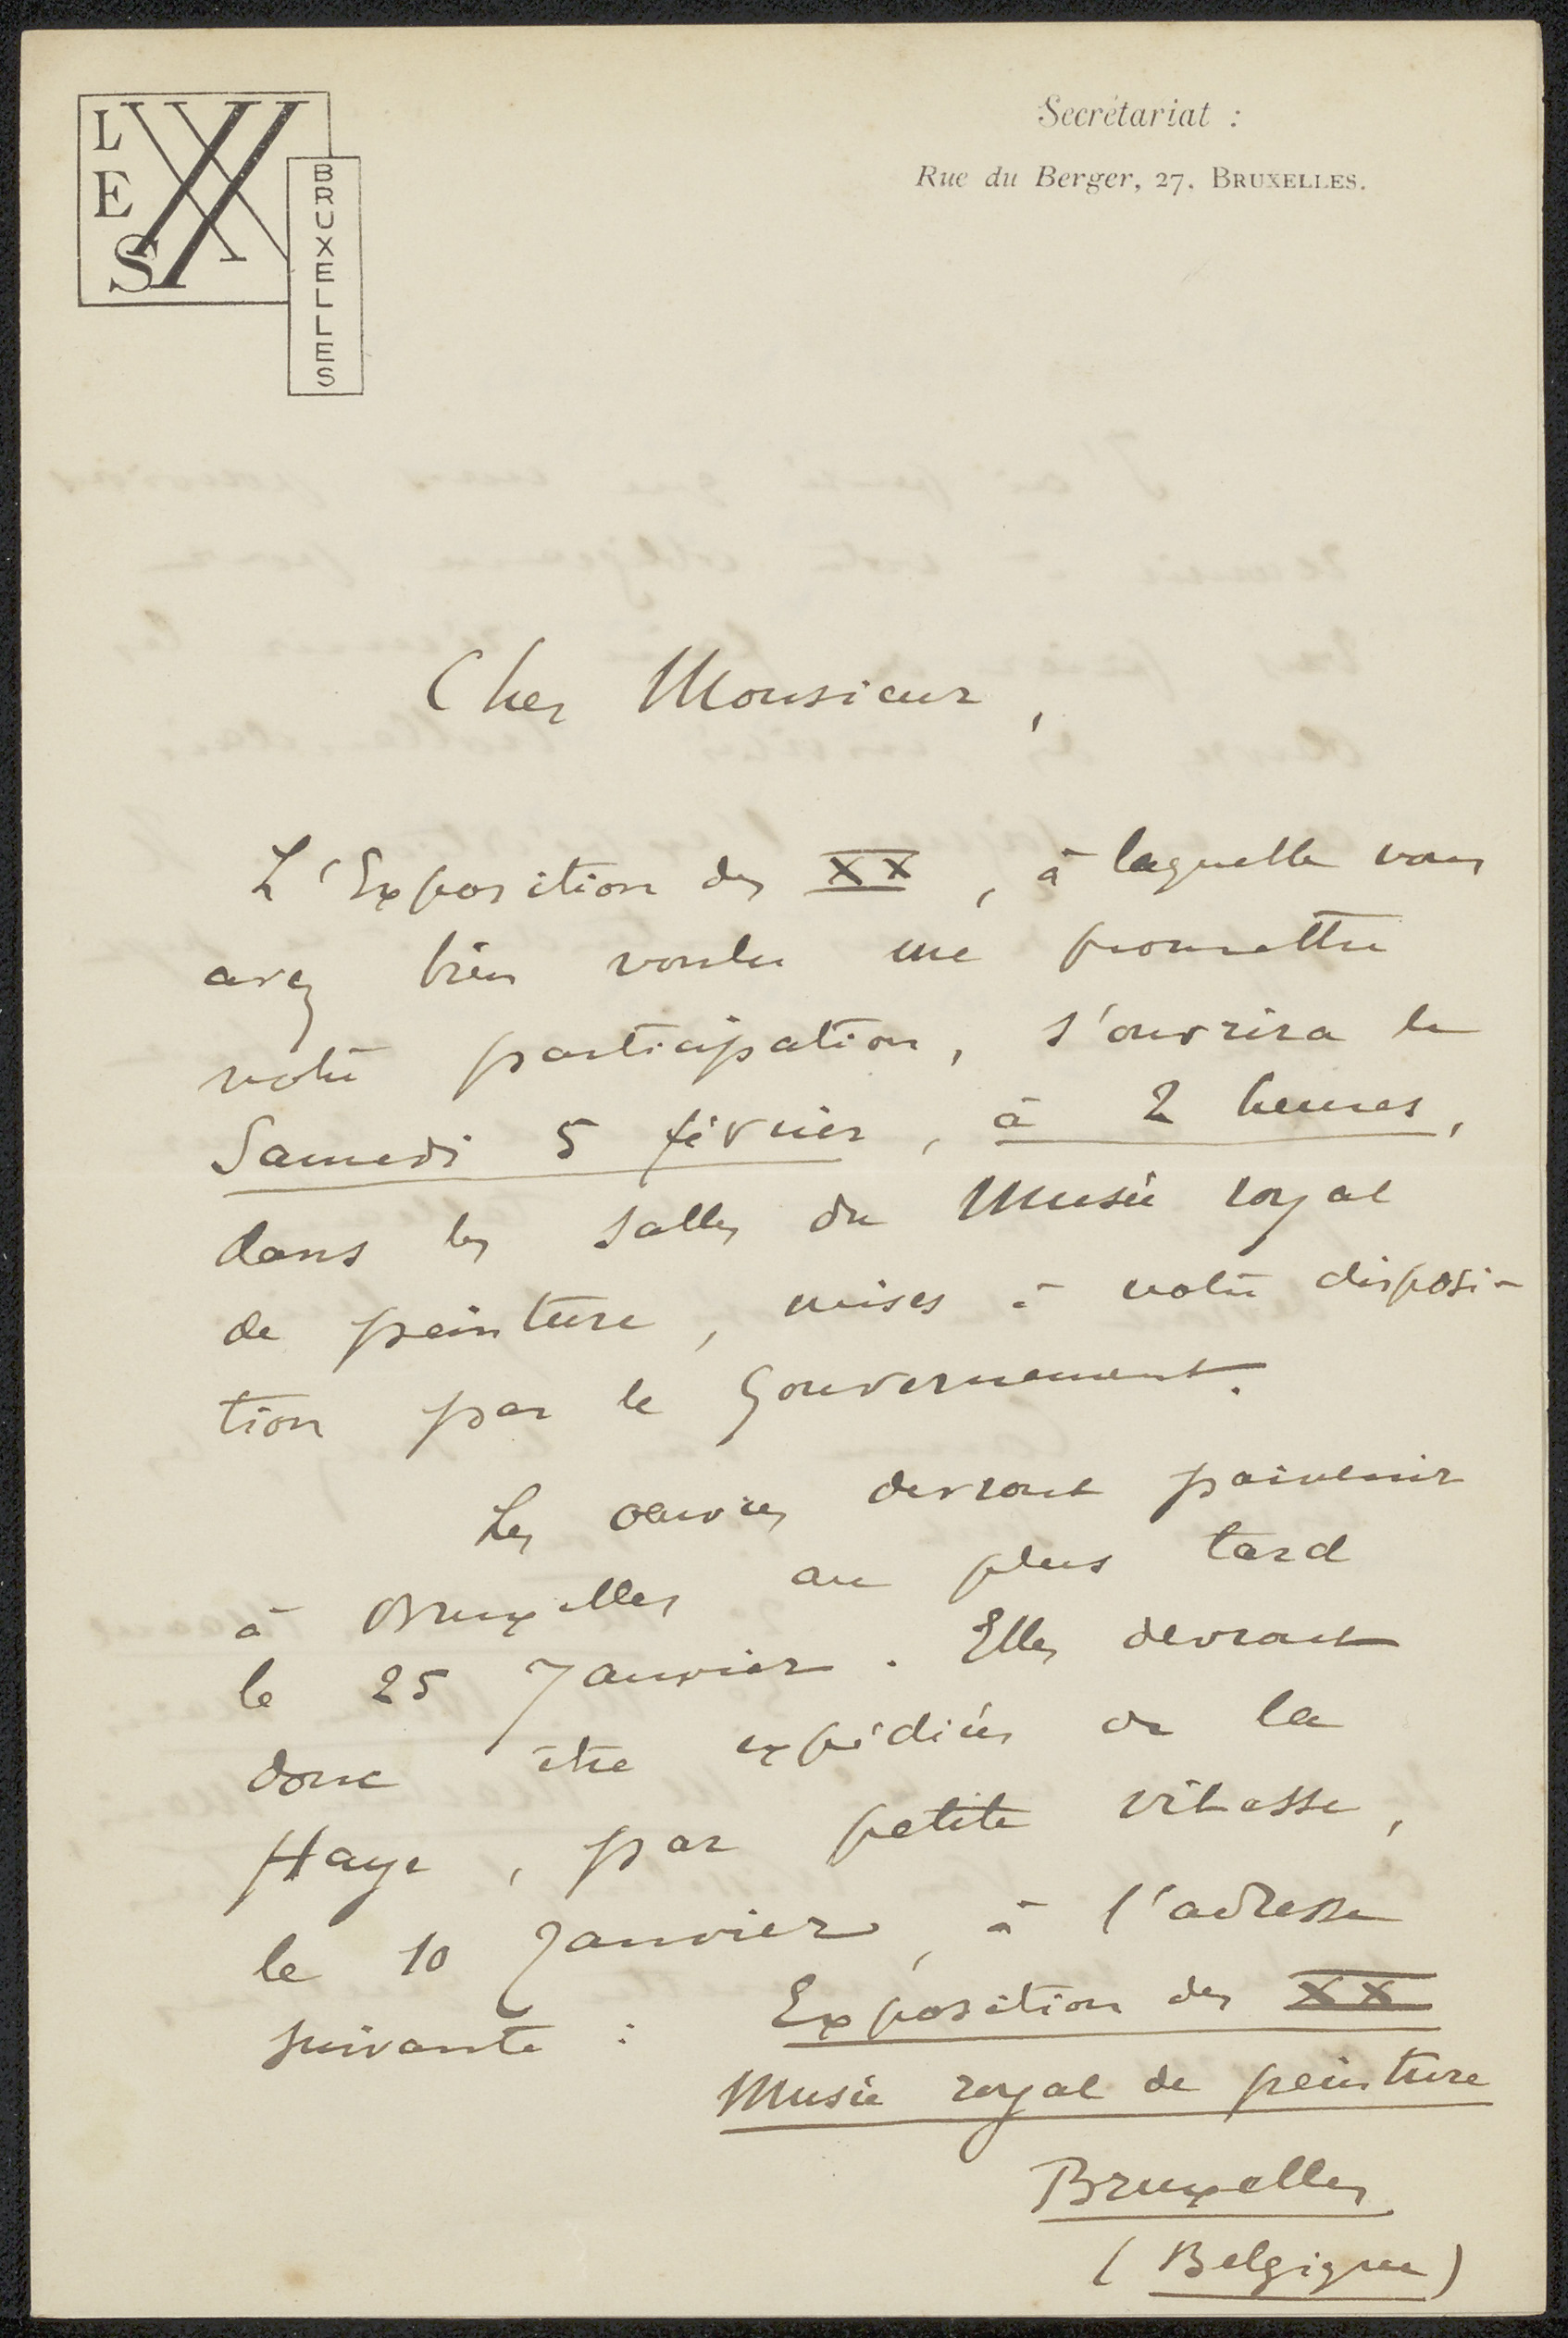 LES XX
BRUXELLES
Secrétariat :
Rue du Berger, 27, BRUXELLES.
Cher Monsieur,
L'Exposition des XX, à laquelle vous
avez bien voulu me promettre
votre participation, s'ouvrira le
Samedi 5 février, à 2 heures,
dans les salles du Musée royal
de peinture, mises à votre disposi-
tion par le Gouvernement.
Les œuvres devront parvenir
à Bruxelles au plus tard
le 25 Janvier. Elles devront
donc être expédiées de la
Haye, par petite vitesse,
le 10 Janvier, à l'adresse
suivante : Exposition des XX
Musée royal de peinture
Bruxelles
(Belgique)